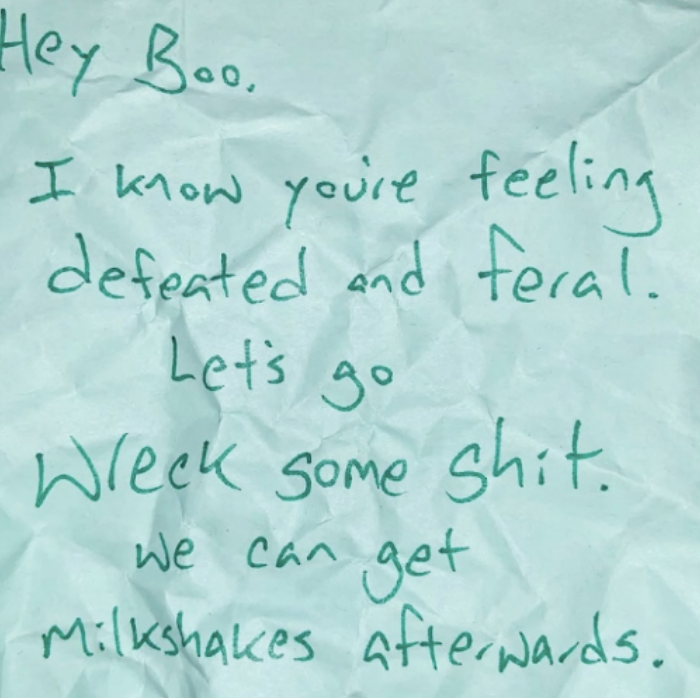 Hey Boo.
I know you're feeling
defeated and feral.
Let's go
Wreck some shit.
we can get
Milkshakes afterwards.